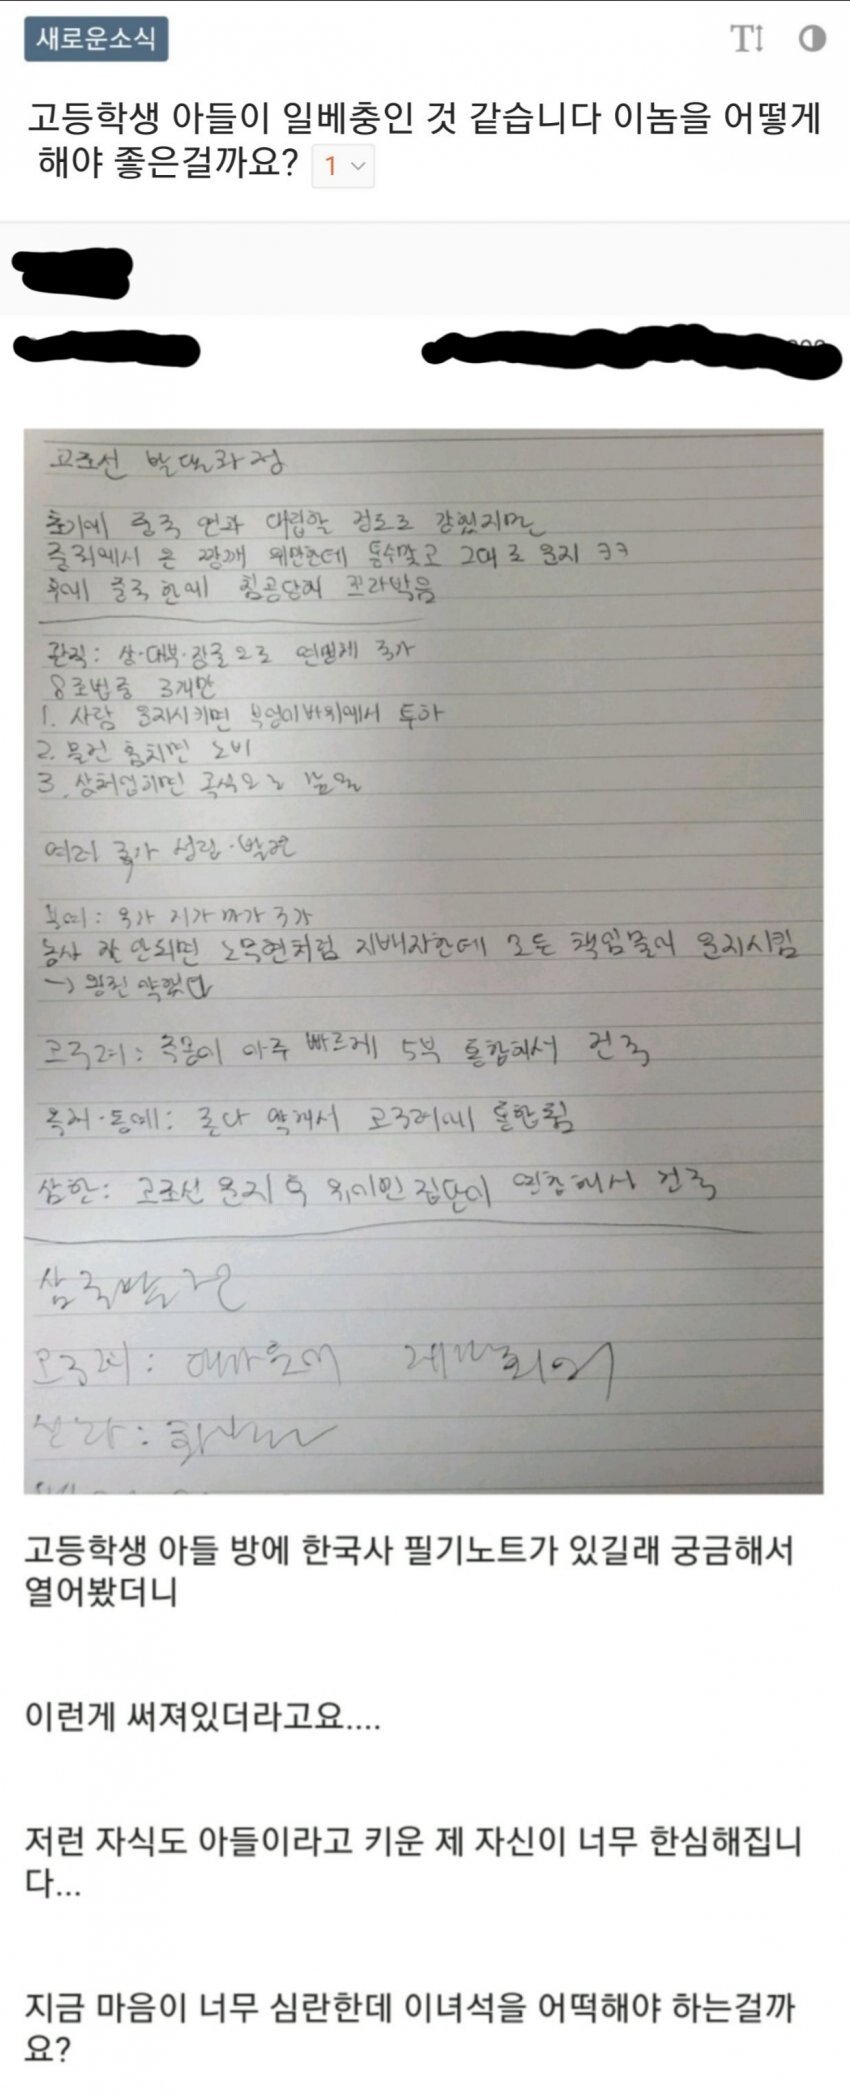 새로운소식
고등학생 아들이 일베충인 것 같습니다 이놈을 어떻게
해야 좋은걸까요? 1
고조선 발달과정
초기에 중국 연과 대립할 정도로 강했지만
중국에서 온 짱깨 위만한데 통수맞고 그대로 운지 ㅋㅋ
후에 중국 한에 침공당해 꼬라박음
관직: 상·대부·장군으로 연맹체 국가
8조법중 3개만
1. 사람 운지시키면 부엉이바위에서 투하
2. 물건 훔치면 노비
3. 상처입히면 곡식으로
여러 국가 성립·발전
부여: 우가 저가 마가 구가
농사 잘 안되면 노무현처럼 지배자한데 모든 책임물어 운지시킴
→ 왕권 약했다
고구려: 주몽이 아주 빠르게 5부 통합해서 건국
옥저·동예: 둘다 약해서 고구려에 통합됨
삼한: 고조선 운지 후 유이민 집단이 연합해서 건국
삼국발전
고구려:
신라:
고등학생 아들 방에 한국사 필기노트가 있길래 궁금해서
열어봤더니
이런게 써져있더라고요....
저런 자식도 아들이라고 키운 제 자신이 너무 한심해집니
다...
지금 마음이 너무 심란한데 이녀석을 어떡해야 하는걸까
요?